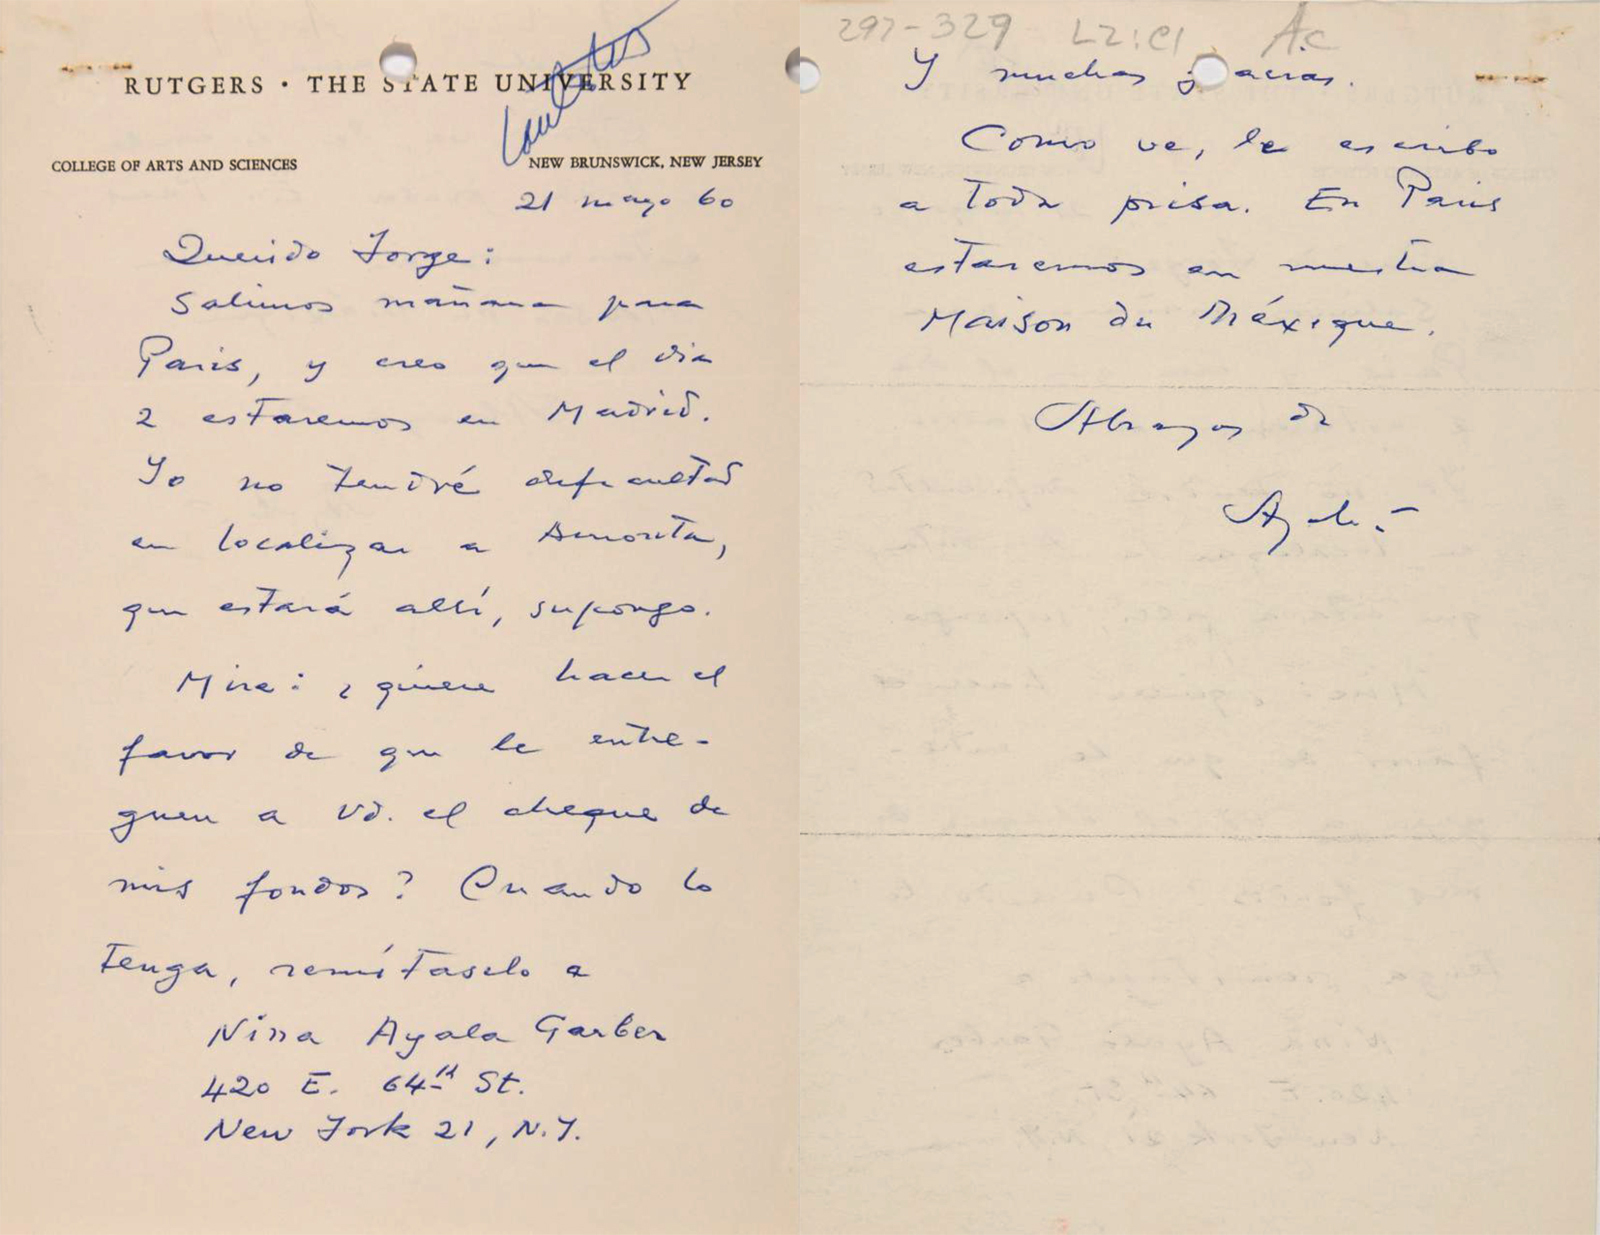 RUTGERS · THE STATE UNIVERSITY
COLLEGE OF ARTS AND SCIENCES
NEW BRUNSWICK, NEW JERSEY
21 mayo 60
Querido Jorge:
Salimos mañana para
París, y creo que el dia
2 estaremos en Madrid.
Yo no tendré dificultad
en localizar a
que estará allí, supongo.
Mire: ¿quiere hacer el
favor de que le entre-
guen a Vd. el cheque de
mis fondos? Cuando lo
tenga, remítaselo a
Nina Ayala Garber
420 E. 64th St.
New York 21, N.Y.
297-329 L2:C1 A.c
Y muchas gracias.
Como ve, le escribo
a toda prisa. En Paris
estaremos en nuestra
Maison du Méxique.
Abrazos de
Ayala